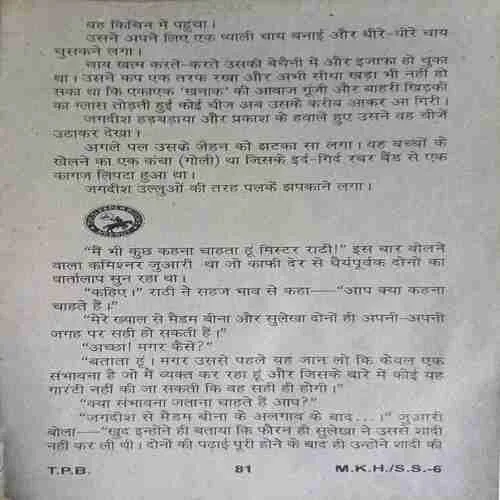 वह किचिन में पहुंचा।
उसने अपने लिए एक प्याली चाय बनाई और धीरे-धीरे चाय
चुसकने लगा।
चाय खत्म करते-करते उसकी बेचैनी में और इजाफा हो चुका
था। उसने कप एक तरफ रखा और अभी सीधा खड़ा भी नहीं हो
सका था कि एकाएक 'खनाक' की आवाज गूंजी और बाहरी खिड़की
का ग्लास तोड़ती हुई कोई चीज अब उसके करीब आकर आ गिरी।
जगदीश हड़बड़ाया और प्रकाश के हवाले हुए उसने वह चीजें
उठाकर देखा।
अगले पल उसके जेहन को झटका सा लगा। वह बच्चों के
खेलने का एक कंचा (गोली) था जिसके इर्द-गिर्द रबर बैंड से एक
कागज लिपटा हुआ था।
जगदीश उल्लुओं की तरह पलकें झपकाने लगा।
"मैं भी कुछ कहना चाहता हूं मिस्टर राठी!" इस बार बोलने
वाला कमिश्नर जुआरी था जो काफी देर से धैर्यपूर्वक दोनों का
वार्तालाप सुन रहा था।
"कहिए।" राठी ने सहज भाव से कहा—"आप क्या कहना
चाहते हैं।"
"मेरे ख्याल से मैडम बीना और सुलेखा दोनों ही अपनी-अपनी
जगह पर सही हो सकती हैं।"
"अच्छा! मगर कैसे?"
"बताता हूं। मगर उससे पहले यह जान लो कि केवल एक
संभावना है जो मैं व्यक्त कर रहा हूं और जिसके बारे में कोई यह
गारंटी नहीं की जा सकती कि वह सही ही होगी।"
"क्या संभावना जताना चाहते हैं आप?"
"जगदीश से मैडम बीना के अलगाव के बाद...।" जुआरी
बोला—"खुद इन्होंने ही बताया कि फौरन ही सुलेखा ने उससे शादी
नहीं कर ली थी। दोनों की पढ़ाई पूरी होने के बाद ही उन्होंने शादी की
T.P.B. 81 M.K.H./S.S.-6